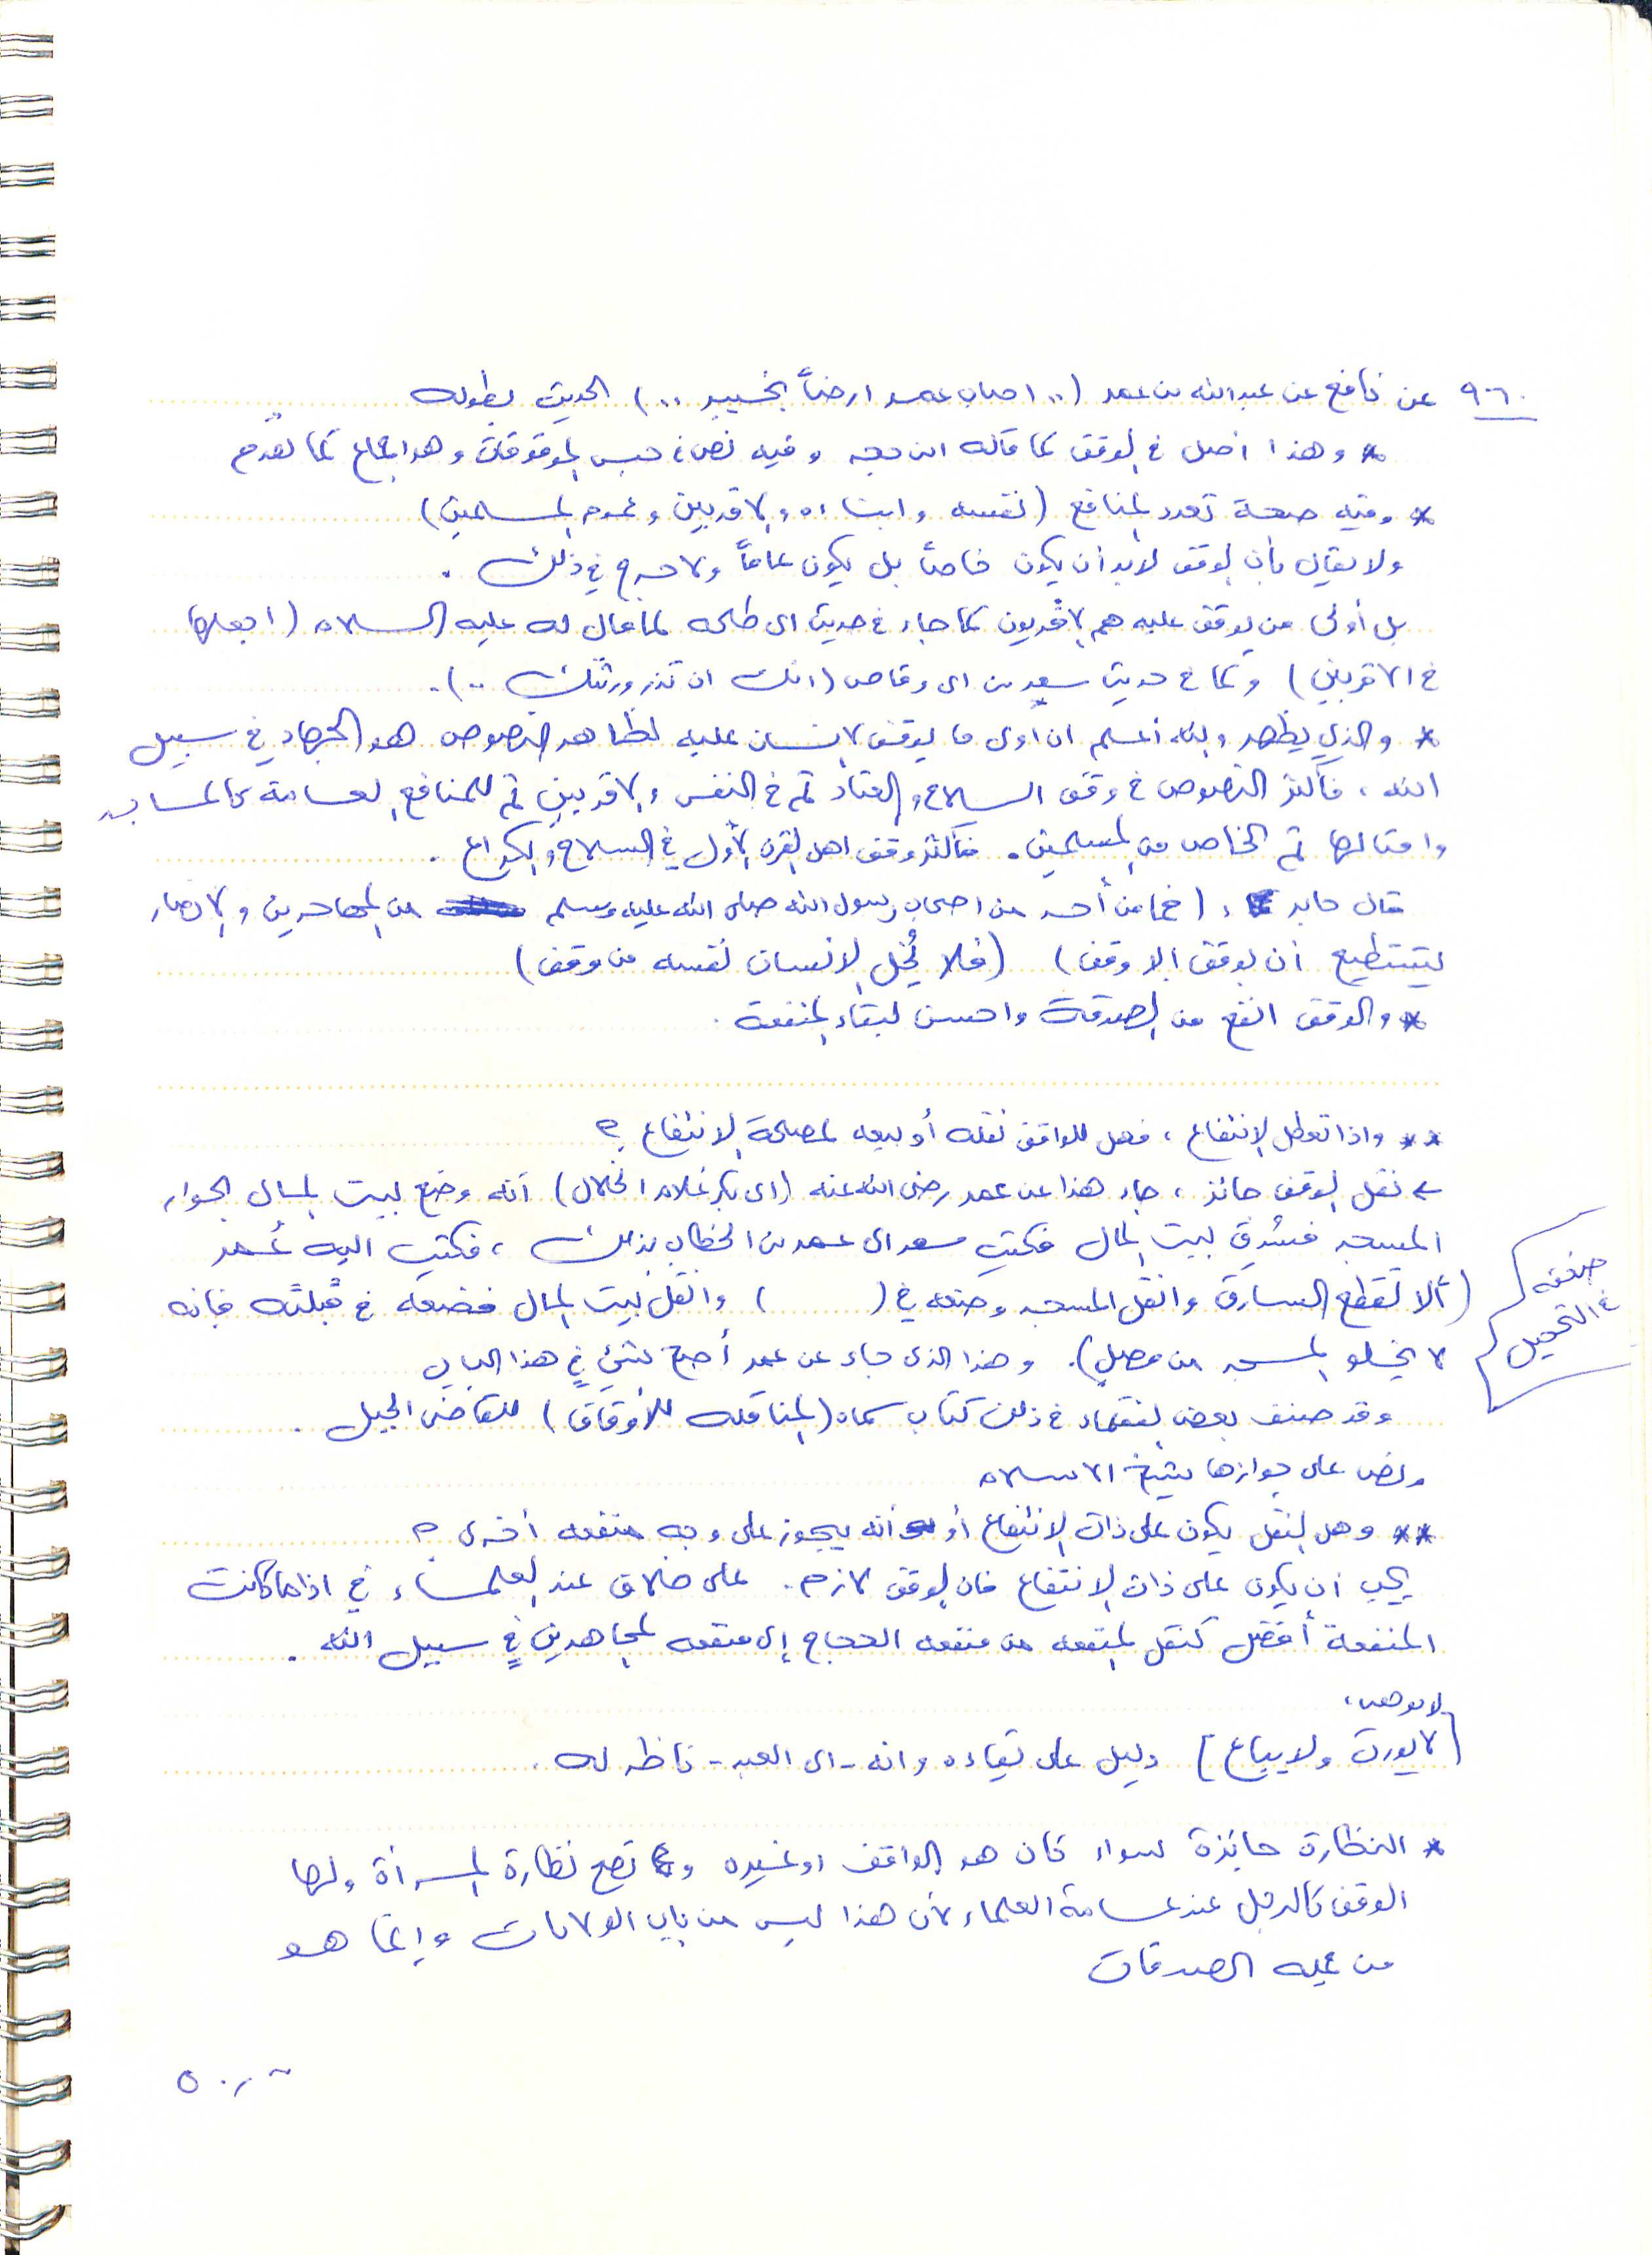 ٩٠٦ عن نافع عن عبدالله بن عمر (.. اصاب عمر ارضاً بخيبر ..) الحديث بطوله
* وهذا أصل في الوقف كما قاله ابن حجر وفيه نص في حبس الموقوفات وهو اجماع كما تقدم
* وفيه صحة تعدد المنافع (نفسه وابناءه والاقربين وعموم المسلمين)
ولا يقال بأن الوقف لابد أن يكون خاصاً بل يكون عاماً ولا حرج في ذلك .
بل أولى من يوقف عليه هم الأقربون كما جاء في حديث ابي طلحه لما قال له عليه السلام (اجعلها
في الاقربين) وكما في حديث سعد بن ابي وقاص (انك ان تذر ورثتك ..) .
* والذي يظهر والله أعلم ان اولى ما يوقف الانسان عليه لظاهر النصوص هو الجهاد في سبيل
الله ، فأكثر النصوص في وقف السلاح والعتاد ثم في النفس والاقربين ثم للمنافع العامة كالمساجد
وامثالها ثم الخاص من المسلمين . فأكثر وقف اهل القرن الأول في السلاح والكراع .
قال جابر : (فما من أحد من اصحاب رسول الله صلى الله عليه وسلم من المهاجرين والانصار
يستطيع أن يوقف الا وقف) (فلا يُخل الانسان نفسه من وقف)
* والوقف انفع من الصدقة واحسن لبقاء المنفعة .
** واذا تعطل الانتفاع ، فهل للواقف نقله أو بيعه لمصلحة الانتفاع ؟
← نقل الوقف جائز ، جاء هذا عن عمر رضي الله عنه (ابي بكر غلام الخلال) أنه وضع لبيت المال بجوار
المسجد فسُرق لبيت المال فكتب سعد الى عمر بن الخطاب بذلك ، فكتب اليه عُمر
(ألا تقطع السارق وانقل المسجد وضعه في ( ) وانقل بيت المال فضعه في قبلته فإنه
لا يخلو المسجد من مصلٍ) . وهذا الذي جاء عن عمر أصح شيء في هذا الباب
صنفه
في التحويل
وقد صنف بعض الفقهاء في ذلك كتاب سماه (المناقله للأوقاف) للقاضي الجبل .
ونص على جوازها شيخ الاسلام
** وهل النقل يكون على ذات الانتفاع أو أنه يجوز على وجه منفعه أخرى ؟
يجب ان يكون على ذات الانتفاع فان الوقف لازم . على خلاف عند العلماء في اذا ما كانت
المنفعة أفضل كنقل المنفعه من منفعه الحجاج إلى منفعه المجاهدين في سبيل الله .
لا يوهب ،
[لا يورث ولا يباع] دليل على بقاءه وانه - اي العبد - ناظر له .
* النظارة جائزة سواء كان هو الواقف او غيره و تصح نظارة المرأة ولها
الوقف كالرجل عند عامة العلماء لأن هذا ليس من باب الولايات وإنما هو
من الصدقات